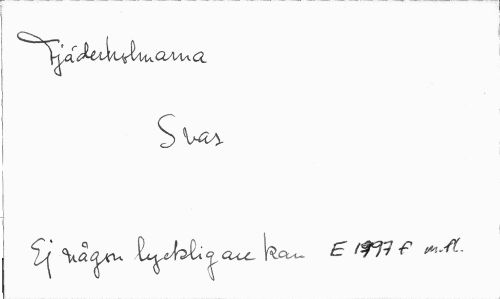 Fjäderholmarna
Svas
Ej någon lyckligare kan E 1997 f m.fl.